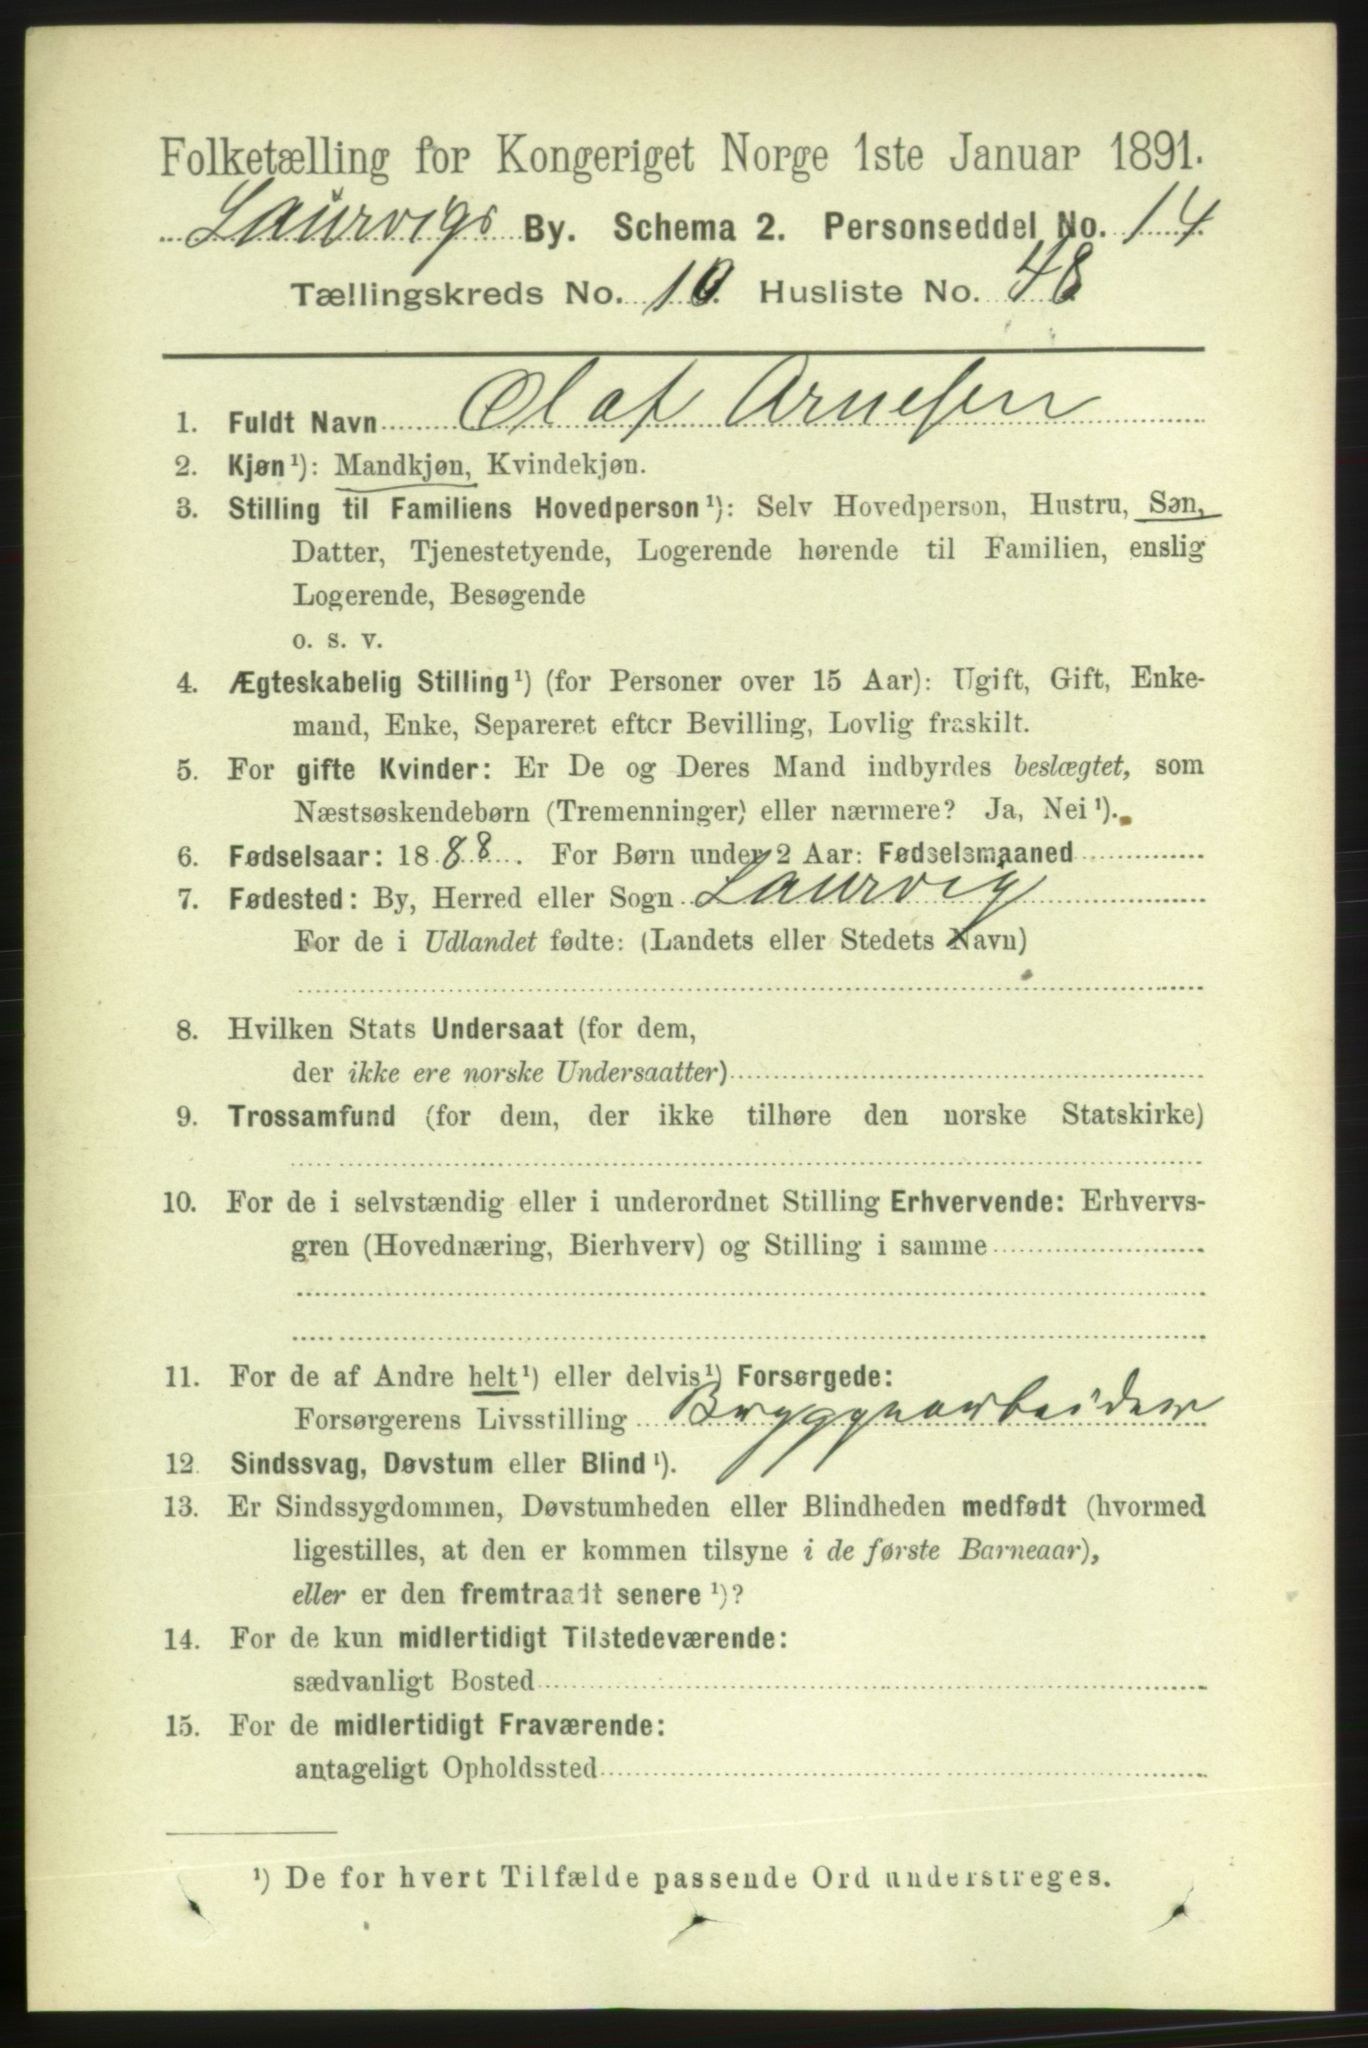 Folketælling for Kongeriget Norge 1ste Januar 1891.
Laurvigs By. Schema 2. Personseddel No. 14
Tællingskreds No. 10. Husliste No. 48
1. Fuldt Navn Olaf Arnesen
2. Kjøn¹): Mandkjøn, Kvindekjøn.
3. Stilling til Familiens Hovedperson¹): Selv Hovedperson, Hustru, Søn,
Datter, Tjenestetyende, Logerende hørende til Familien, enslig
Logerende, Besøgende
o. s. v.
4. Ægteskabelig Stilling¹) (for Personer over 15 Aar): Ugift, Gift, Enke-
mand, Enke, Separeret efter Bevilling, Lovlig fraskilt.
5. For gifte Kvinder: Er De og Deres Mand indbyrdes beslægtet, som
Næstsøskendebørn (Tremenninger) eller nærmere? Ja, Nei¹).
6. Fødselsaar: 1888. For Børn under 2 Aar: Fødselsmaaned
7. Fødested: By, Herred eller Sogn Laurvig
For de i Udlandet fødte: (Landets eller Stedets Navn)
8. Hvilken Stats Undersaat (for dem,
der ikke ere norske Undersaatter)
9. Trossamfund (for dem, der ikke tilhøre den norske Statskirke)
10. For de i selvstændig eller i underordnet Stilling Erhvervende: Erhvervs-
gren (Hovednæring, Bierhverv) og Stilling i samme
11. For de af Andre helt¹) eller delvis¹) Forsørgede:
Forsørgerens Livsstilling Bryggearbeider
12. Sindssvag, Døvstum eller Blind¹).
13. Er Sindssygdommen, Døvstumheden eller Blindheden medfødt (hvormed
ligestilles, at den er kommen tilsyne i de første Barneaar),
eller er den fremtraadt senere¹)?
14. For de kun midlertidigt Tilstedeværende:
sædvanligt Bosted
15. For de midlertidigt Fraværende:
antageligt Opholdssted
¹) De for hvert Tilfælde passende Ord understreges.